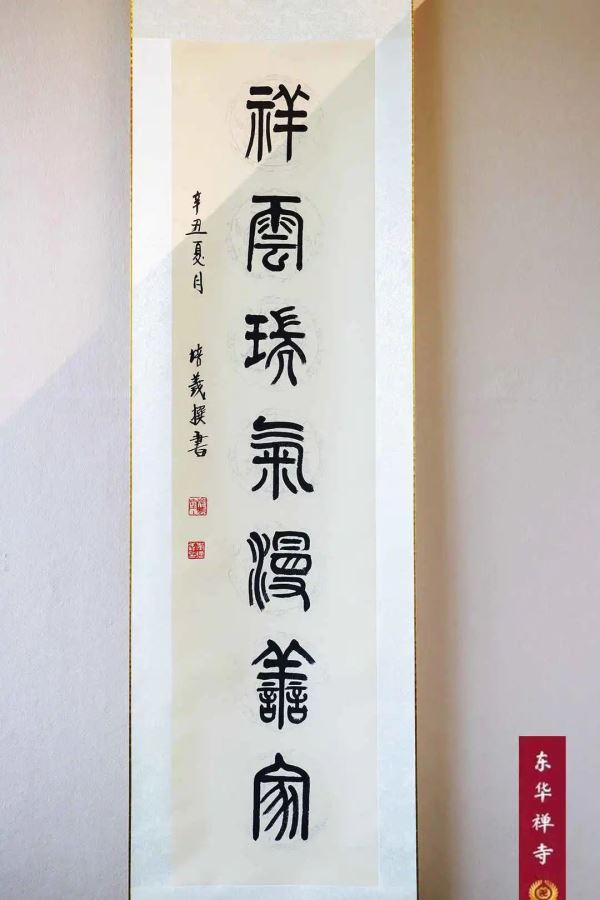 祥雲瑞氣漫善家
辛丑夏月 培義撰書
东华禅寺